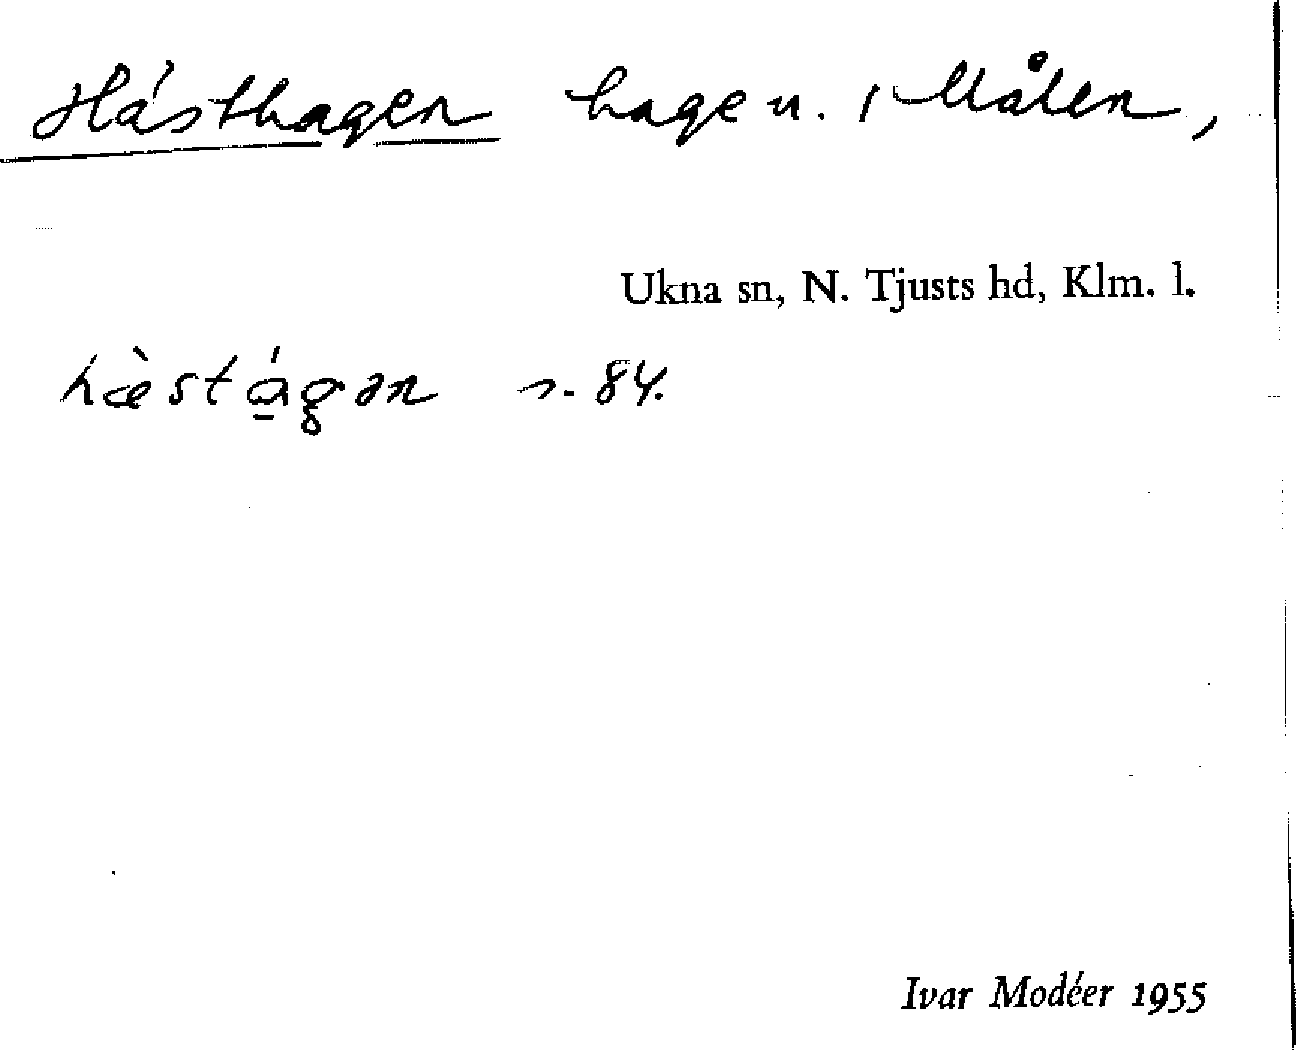 Hästhagen hage u. i Målen,
Ukna sn, N. Tjusts hd, Klm. l.
hæ̀stá̱gən s. 84.
Ivar Modéer 1955